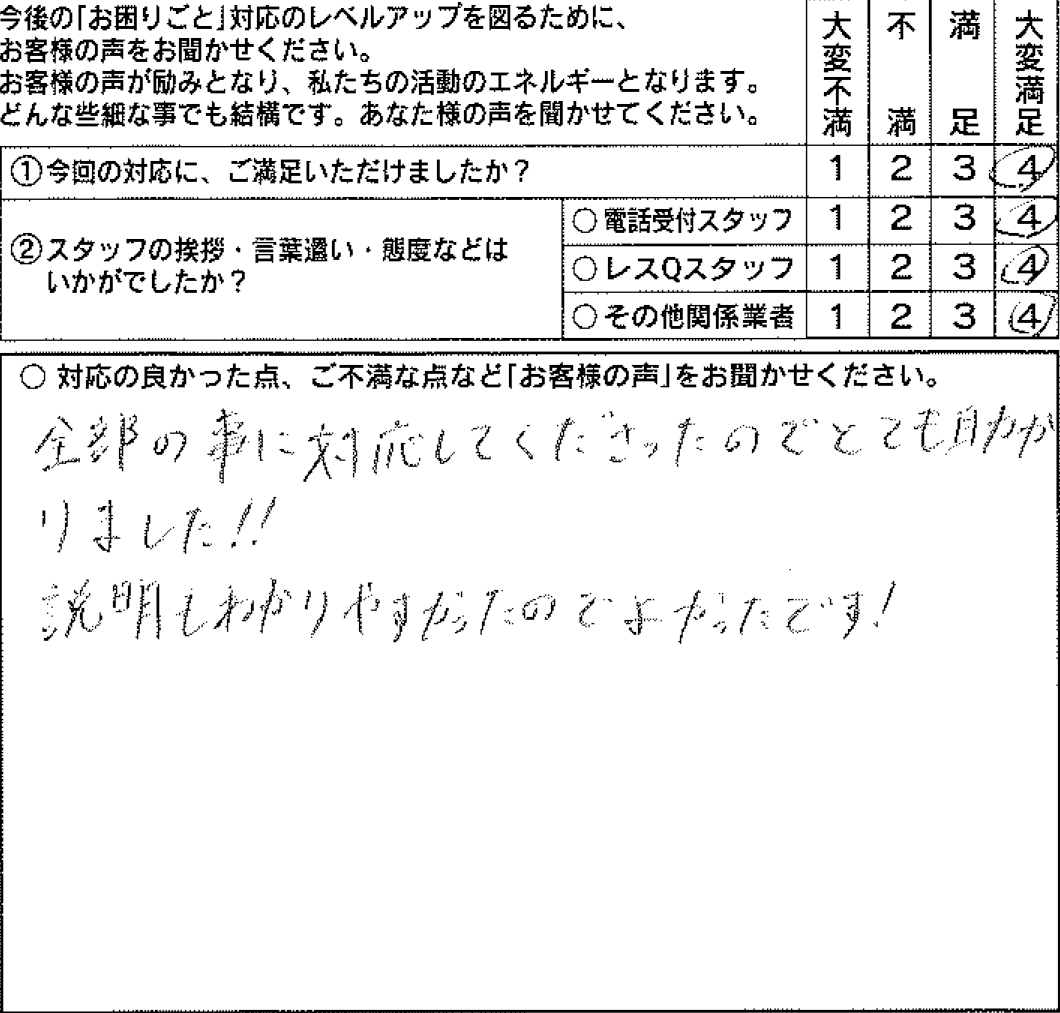 今後の「お困りごと」対応のレベルアップを図るために、
お客様の声をお聞かせください。
お客様の声が励みとなり、私たちの活動のエネルギーとなります。
どんな些細な事でも結構です。あなた様の声を聞かせてください。
大変不満 不満 満足 大変満足
①今回の対応に、ご満足いただけましたか？ 1 2 3 4
②スタッフの挨拶・言葉遣い・態度などは
いかがでしたか？
○電話受付スタッフ 1 2 3 4
○レスQスタッフ 1 2 3 4
○その他関係業者 1 2 3 4
○ 対応の良かった点、ご不満な点など「お客様の声」をお聞かせください。
全部の事に対応してくださったのでとても助か
りました!!
説明もわかりやすかったのでよかったです!